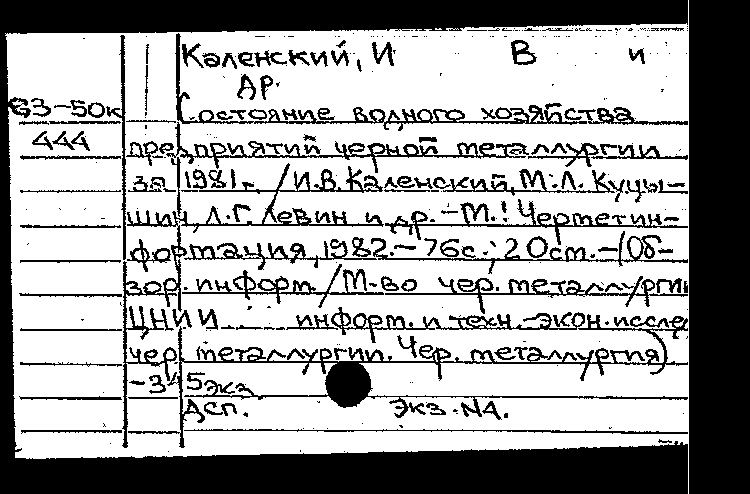 Каленский, И В и
др.
63-50к Состояние водного хозяйства
444 предприятий черной металлургии
за 1981г. / И.В. Каленский, М.Л. Куцы-
шин, Л.Г. Левин и др. - М.: Черметин-
формация, 1982. - 76с.; 20см. - (Об-
зор. информ. / М-во чер. металлургии
ЦНИИ информ. и техн.-экон. иссле
чер. металлургии. Чер. металлургия)
5экз.
Дсп. Экз. N4.